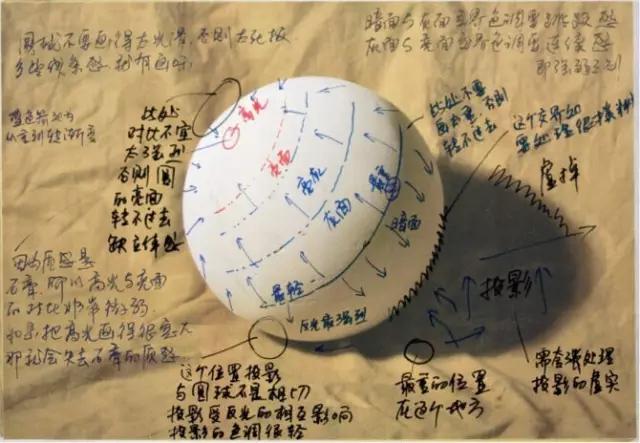 圆球不要画得太光滑，否则太死板
多些线条感，就有画味
暗面与灰面交界色调要跳跃些
灰面与亮面交界色调要连续些
即强弱区别
从重到轻渐变
此处
对比不宜
太强烈
否则圆
的亮面
转不过去
缺立体感
高光
亮面
亮灰
灰面
最暗
暗面
最轻
反光最强烈
此处不要
画太重，否则
转不过去
这个交界如
要处理很模糊
虚掉
投影
因为质感是
石膏，所以高光与亮面
的对比非常微弱
如果把高光画得很突出
那就会失去石膏的质感
这个位置投影
与圆球不是相切
投影受反光的相互影响
投影的色调很轻
最重的位置
在这个地方
需查强处理
投影的虚实